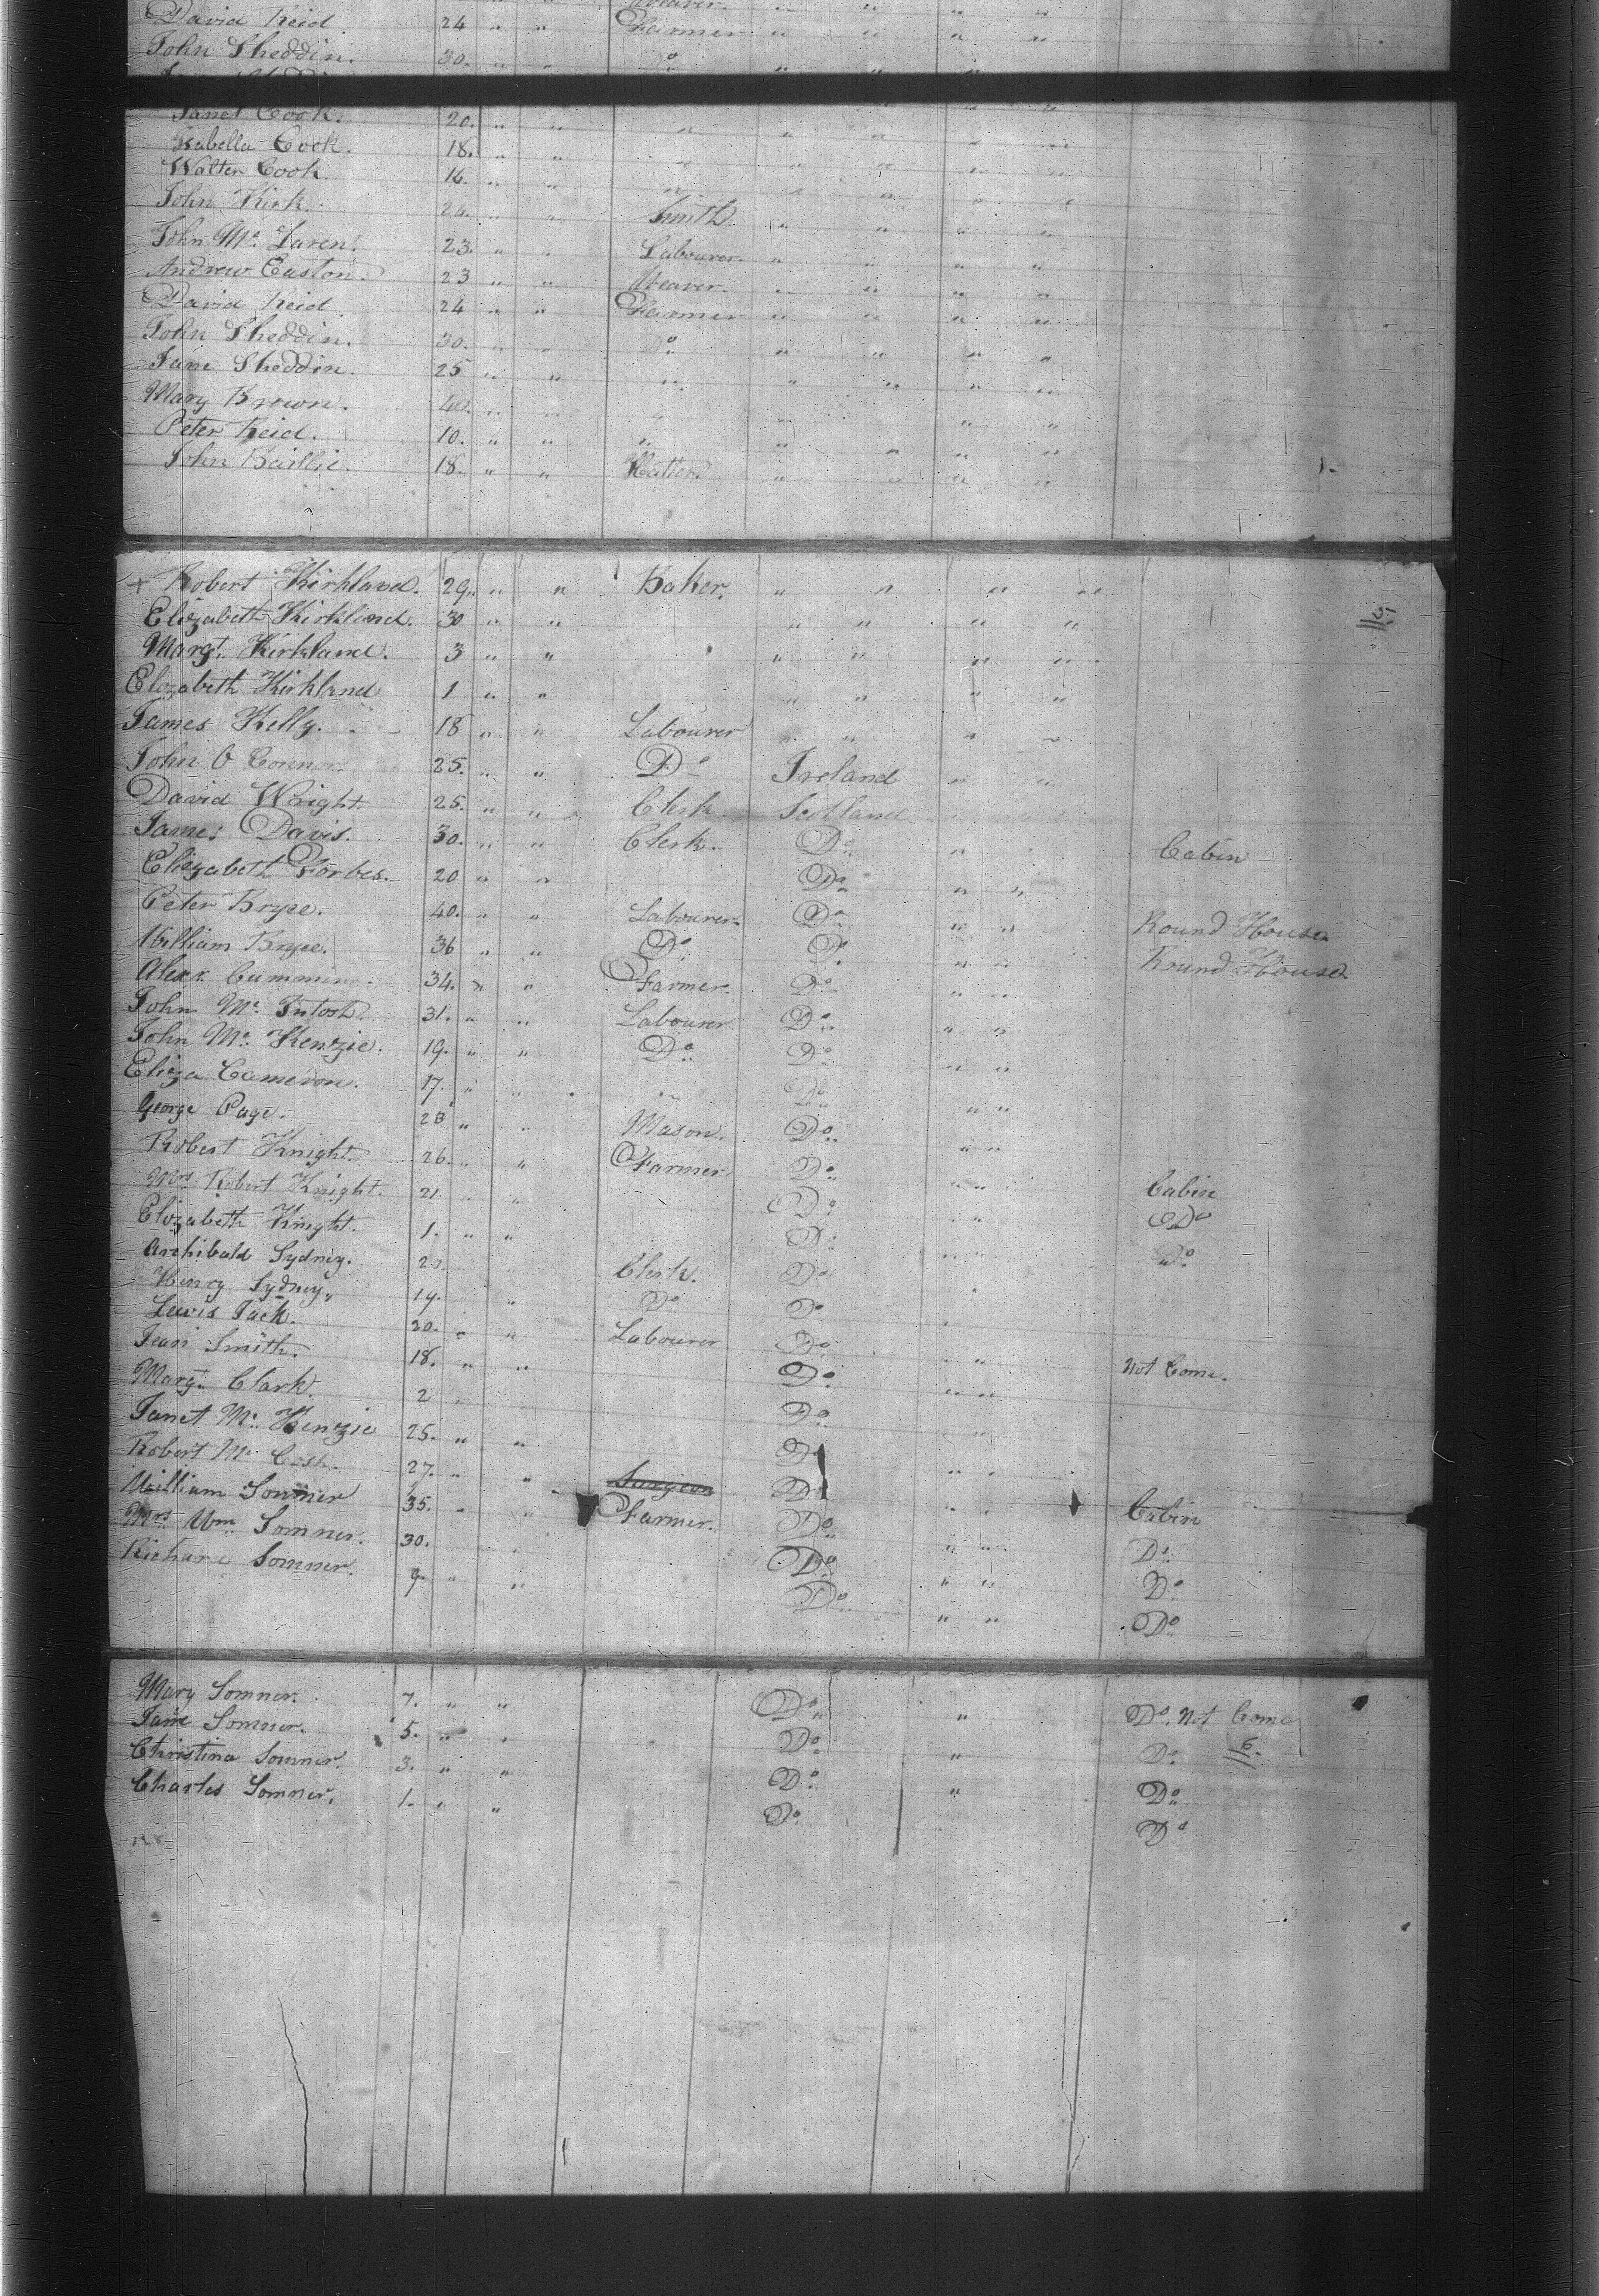 David Reid 24 " " Farmer " " " "
John Sheddin. 30. " " Do " " "
Janet Cook. 20. " " " " " " "
Isabella Cook. 18. " " " " " " "
Walter Cook. 16. " " " " " " "
John Kirk. " " Smith " " " "
John Mc Laren. 23. " " Labourer " " " "
Andrew Easton. 23 " " Weaver " " " "
David Reid. 24 " " Farmer " " " "
John Sheddin. 30. " " Do " " " "
Jane Sheddin. 25 " " " " " " "
Mary Brown. 40. " " " " " "
Peter Reid. 10. " " " " " " "
John Baillie. 18. " " Hatter " " " "
+ Robert Kirkland. 29. " " Baker. " " " "
Elizabeth Kirkland. 30 " " " " " "
Margt. Kirkland. 3 " " " " " "
Elizabeth Kirkland 1 " " " " " "
James Kelly. 18 " " Labourer " " " "
John O Connor. 25. " " Do Ireland " "
David Wright 25. " " Clerk Scotland
James Davis. 30. " " Clerk. Do " Cabin
Elizabeth Forbes. 20 " " Do " "
Peter Bryce. 40. " " Labourer Do " " Round House
William Bryce. 36 " " Do Do " " Round House
Alexr. Cumming. 34. " " Farmer. Do " "
John Mc Intosh. 31. " " Labourer Do " "
John Mc Kenzie. 19. " " Do Do " "
Eliza Cameron. 17. " " " Do " "
George Page. 28 " " Mason. Do " "
Robert Knight. 26. " " Farmer Do " " Cabin
Mrs Robert Knight. 21. " Do " Do
Elizabeth Knight. 1. " " Do " " Do
Archibald Sydney. 20. Clerk. Do
Henry Sydney. 19. " Do Do
Lewis Jack. 20. " " Labourer Do " "
Jean Smith. 18. " " Do " " Not Come.
Margt. Clark. 2 " Do
Janet Mc Kenzie 25. " " Do " "
Robert Mc Cosh. 27. " " Surgeon Do " " Cabin
William Somner 35. " " Farmer. Do " " Do
Mrs Wm Somner. 30. " Do " " Do
Richard Somner. 9. " " Do " " Do
Mary Somner. 7. " " Do " Do. Not Come
Jane Somner. 5. " " Do " Do 6.
Christina Somner. 3. " " Do " Do
Charles Somner. 1. " " Do Do